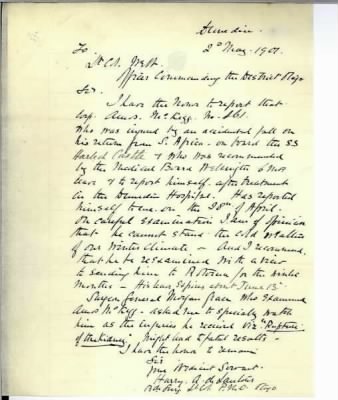 Dunedin.
2d May. 1901.
To
Lt Col. Webb
Officer Commanding the District Otago
Sir.
I have the honor to report that
Corp. Amos. McKegg. No. 161.
who was injured by an accidental fall on
his return from S. Africa. on board the SS
Harlech Castle & who was recommended
by the Medical Board Wellington 6 Mos
leave & to report himself after treatment
in the Dunedin Hospital. Has reported
himself to me. on the 28th of April.
On careful examination I am of opinion
that he cannot stand the cold weather
of our Winter Climate — And I recommend
that he be reexamined with a view
to sending him to Rotorua for the winter
months — His leave expires about June 13th
Surgeon General Morgan Grace who examined
Amos McKegg - asked me to specially watch
him as the injuries he received viz "Rupture
of the Kidney" might lead to fatal results —
I have the honor to remain
Sir
your obedient Servant.
Harry. A. de Lautour
Lt Col P.M.O. Otago